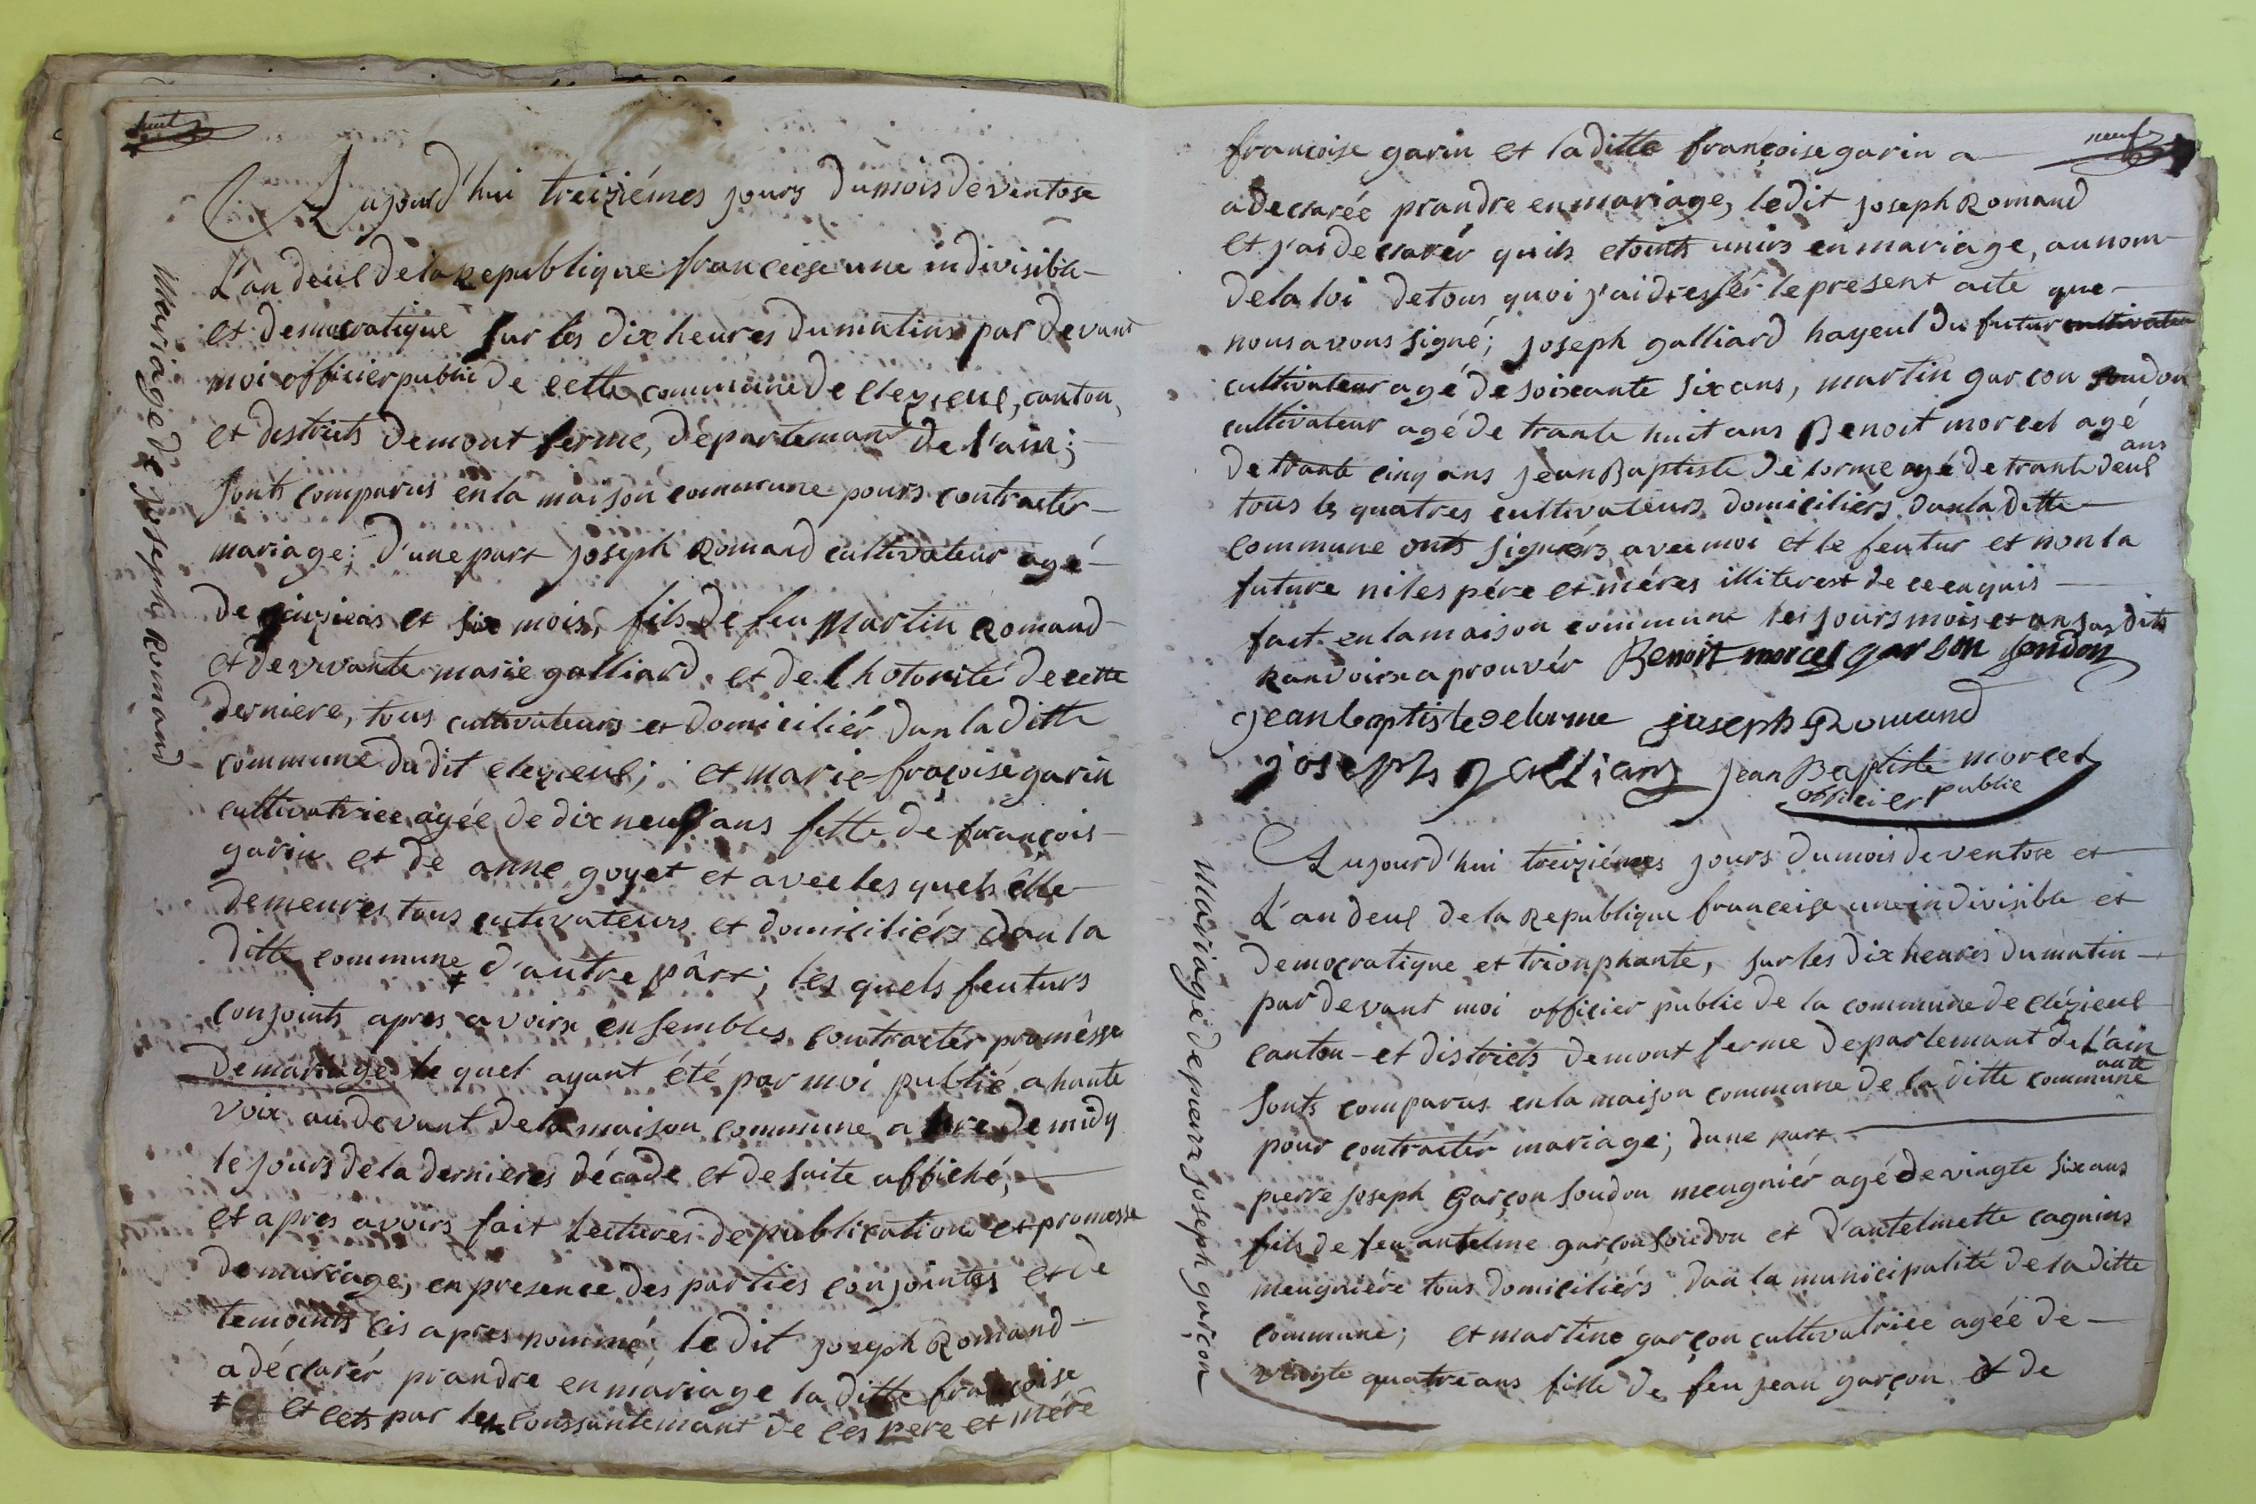 huit
Mariage de joseph Romand
Aujourd'hui treiziémes jours dumois de ventose
L'an deux dela Republique franceise une indivisible
et democratique sur les dix heures dumatins par devant
moi officier public de cette commune de clezieux, canton,
et districts demont ferme, departemant de l'ain;
sonts comparus en la maison commune pours contractér
mariage; d'une part joseph Romand cultivateur agé
de et six mois, fils de feu martin Romand
et de vivante marie galliard et de l hotorité de cette
derniere, tous cultivateurs et domiciliér dan la ditte
commune dudit clezieux; et marie fraçoise garin
cultivatrice agée de dix neuf ans fille de françois
garin et de anne goyet et avec les quels êlle
demeures tous cutivateurs et domiciliérs dan la
ditte commune ‡ d'autre pârt; les quels feuturs
conjoints apres avoirs ensembles contractér promêsse
demariage le quel ayant été par moi publié a haute
voix au devant de la maison commune a de midy
le jours de la dernieres décade et de suite affiché,
et apres avoirs fait Lectures de publications et promesse
de mariage, en presence des parties conjointes et de
temoints cis apres nommé, le dit joseph Romand
a déclarér prandre en mariage la ditte françoise
‡ et cets par les conssantemant de ces pere et mére
neuf
françoise garin et laditte françoise garin a
a declarée prandre en mariage, ledit joseph Romand
et j'ai declarér quils etoints unirs en mariage, au nom
de la loi de tous quoi j'ai dressér le present acte que
nous avons signé; joseph galliard hayeul du futur cultivateur
cultivateur agé de soixante six ans, martin garcon soudon
cultivateur agé de trante huit ans Benoit morcel agé
de trante cinq ans jean Baptiste de lorme agé de trante deux ans
tous les quatres cultivateurs domiciliérs dan la ditte
commune onts signérs avec moi et le feutur et non la
future ni les pére et méres illiterest de ce enquis
fait en la maison commune les jours mois et an susdits
Ranvoirs aprouvér Benoit morcel garson soudon
jean baptiste delorme joseph Romand
joseph galliard jean Baptiste morcel
officier publie
Mariage de pierre joseph garçon
Aujourd'hui treiziémes jours dumois de ventose et
L'an deux de la Republique franceise une indivisible et
democratique et trionphante, sur les dix heures dumatin
par devant moi officier public de la commune de clézieux
canton et districts demont ferme departemant de L'ain
sonts comparus en la maison commune de la ditte commune
pour contractér mariage; dune part
pierre joseph Garçon soudon meugniér agé de vingte six ans
fils de feu antelme garçon soudon et d'antelmette cagnins
meugniére tous domiciliérs dan la municipalité de la ditte
commune; et martine garçon cultivatrice agée de
vingte quatre ans fille de feu jean garçon et de